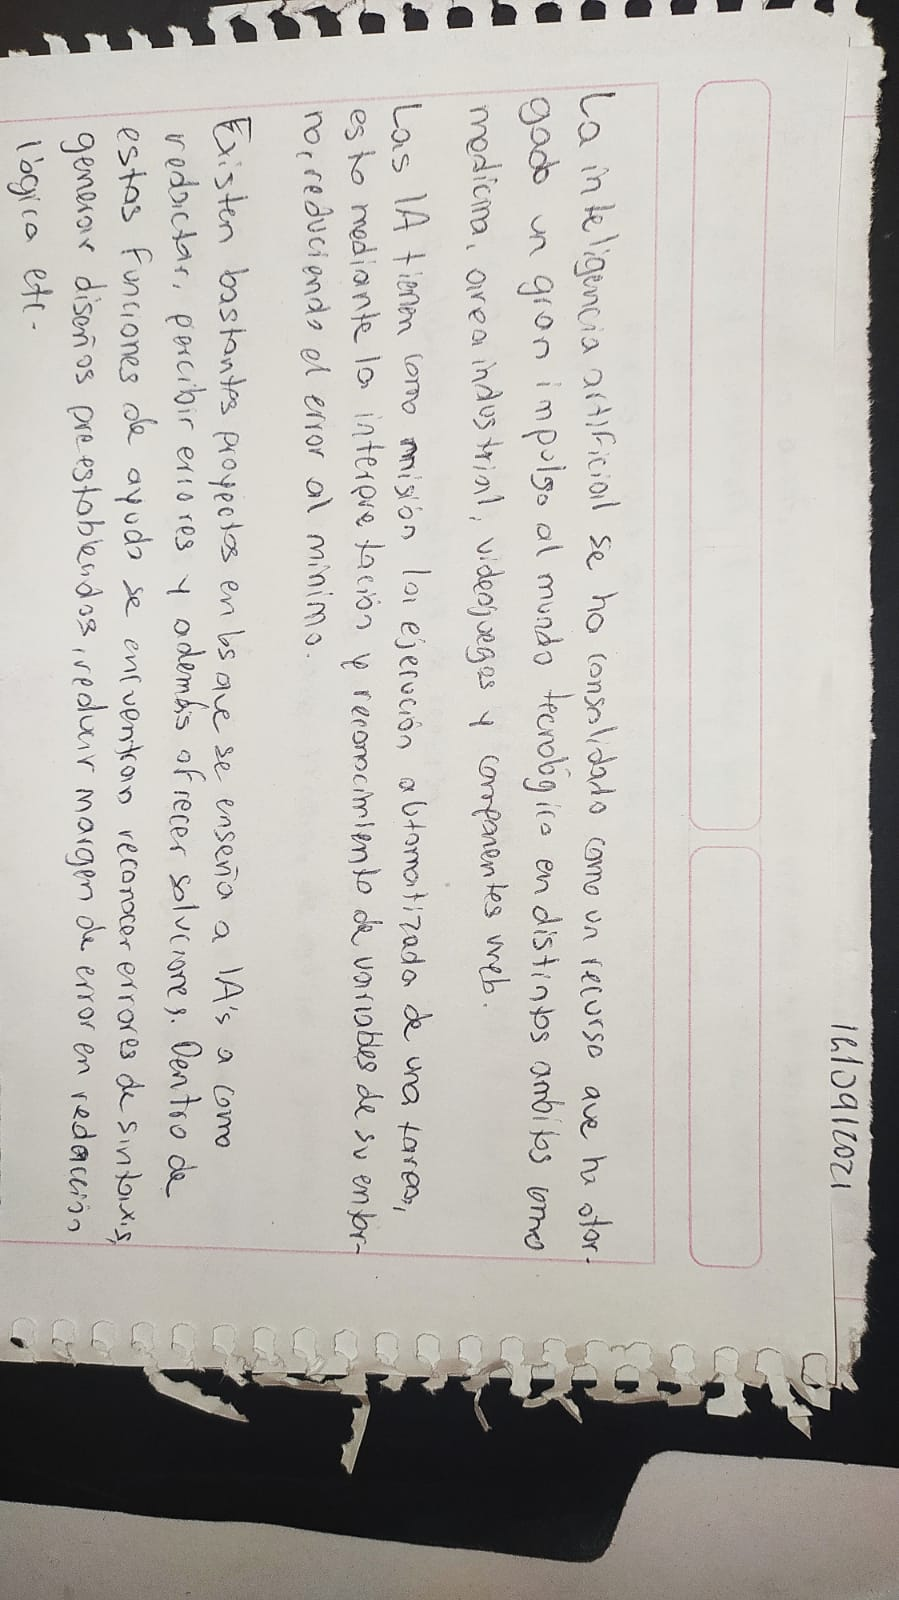 14/09/2021
La inteligencia artificial se ha consolidado como un recurso que ha otor-
gado un gran impulso al mundo tecnológico en distintos ambitos como
medicina, area industrial, videojuegos y componentes web.
Las IA tienen como misión la ejecución automatizada de una tarea,
esto mediante la interpretación y reconocimiento de variables de su entor-
no, reduciendo el error al minimo.
Existen bastantes proyectos en los que se enseña a IA's a como
redactar, percibir errores y además ofrecer soluciones. Dentro de
estas funciones de ayuda se encuentran reconocer errores de sintaxis,
generar diseños preestablecidos, reducir margen de error en redacción
lógica etc.